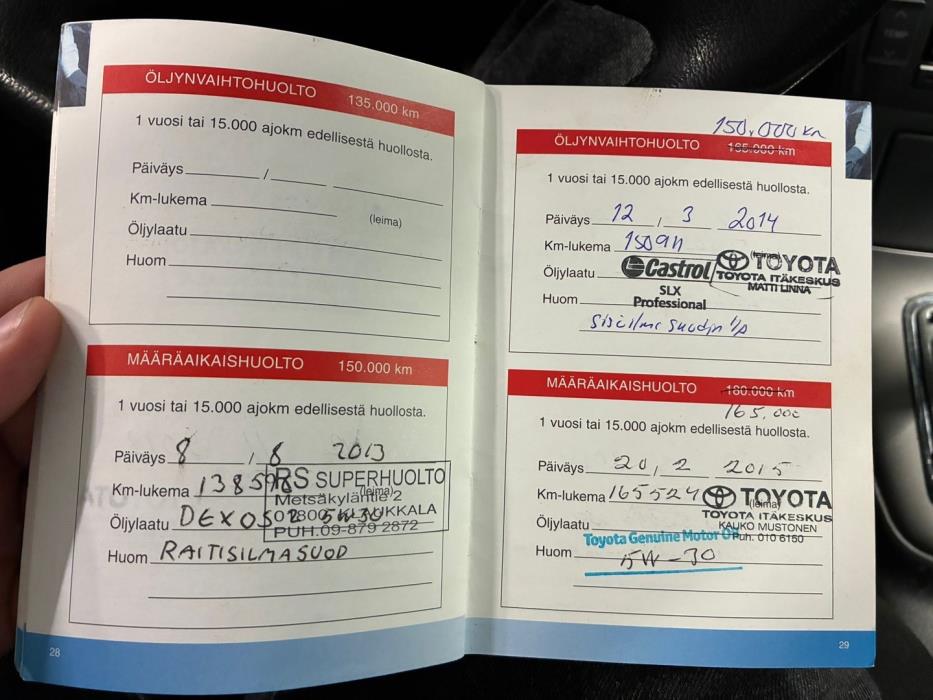 ÖLJYNVAIHTOHUOLTO 135.000 km
1 vuosi tai 15.000 ajokm edellisestä huollosta.
Päiväys / 
Km-lukema
(leima)
Öljylaatu
Huom
MÄÄRÄAIKAISHUOLTO 150.000 km
1 vuosi tai 15.000 ajokm edellisestä huollosta.
Päiväys 8 / 8 2013
Km-lukema 138598
(leima)
RS SUPERHUOLTO
Metsäkyläntie 2
01800 KLAUKKALA
PUH.09-879 2872
Öljylaatu DEXOS 2 5W30
Huom RAITISILMASUOD
28
150.000 km
ÖLJYNVAIHTOHUOLTO 165.000 km
1 vuosi tai 15.000 ajokm edellisestä huollosta.
Päiväys 12 / 3 2014
Km-lukema
(leima)
TOYOTA
TOYOTA ITÄKESKUS
MATTI LINNA
Öljylaatu Castrol
SLX
Professional
Huom
MÄÄRÄAIKAISHUOLTO 180.000 km
165.000
1 vuosi tai 15.000 ajokm edellisestä huollosta.
Päiväys 20 / 2 2015
Km-lukema 165524
(leima)
TOYOTA
TOYOTA ITÄKESKUS
KAUKO MUSTONEN
Puh. 010 6150
Öljylaatu Toyota Genuine Motor Oil
Huom 5W-30
29
TEMP